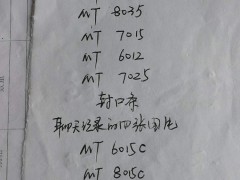 MT 8035
MT 7015
MT 6012
MT 7025
封口京
聊天记录前四张图片
MT 6015C
MT 8015C